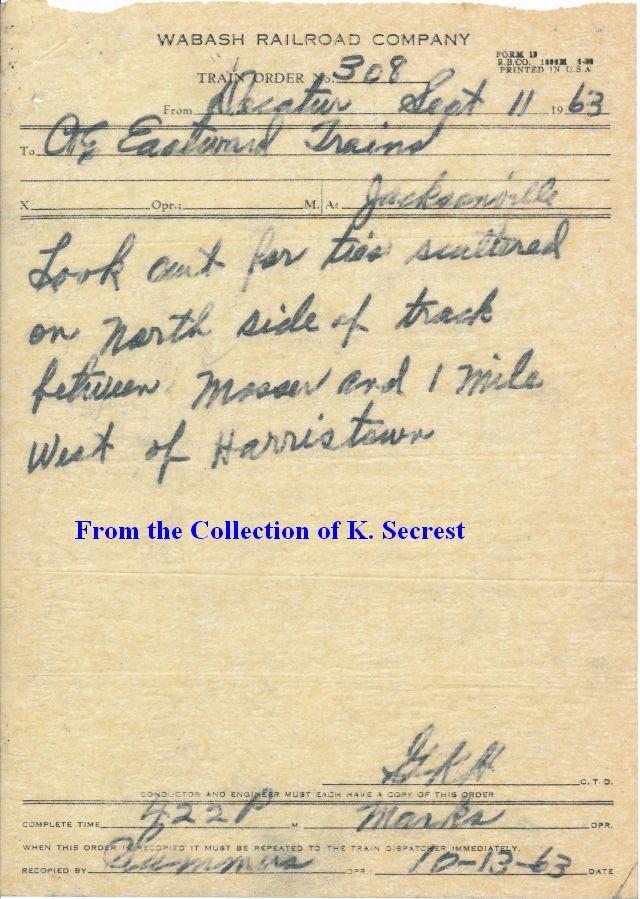 WABASH RAILROAD COMPANY
FORM 19
R.B.CO.
PRINTED IN U.S.A
TRAIN ORDER No. 308
From Decatur Sept 11 1963
To Eastward Trains
X Opr.; M. At Jacksonville
Look out for ties scattered
on North side of track
between Mosser and 1 mile
West of Harristown
From the Collection of K. Secrest
C.T.D.
CONDUCTOR AND ENGINEER MUST EACH HAVE A COPY OF THIS ORDER
COMPLETE TIME 422P M Marks OPR.
WHEN THIS ORDER IS RECOPIED IT MUST BE REPEATED TO THE TRAIN DISPATCHER IMMEDIATELY.
RECOPIED BY Summers OPR.: 10-13-63 DATE